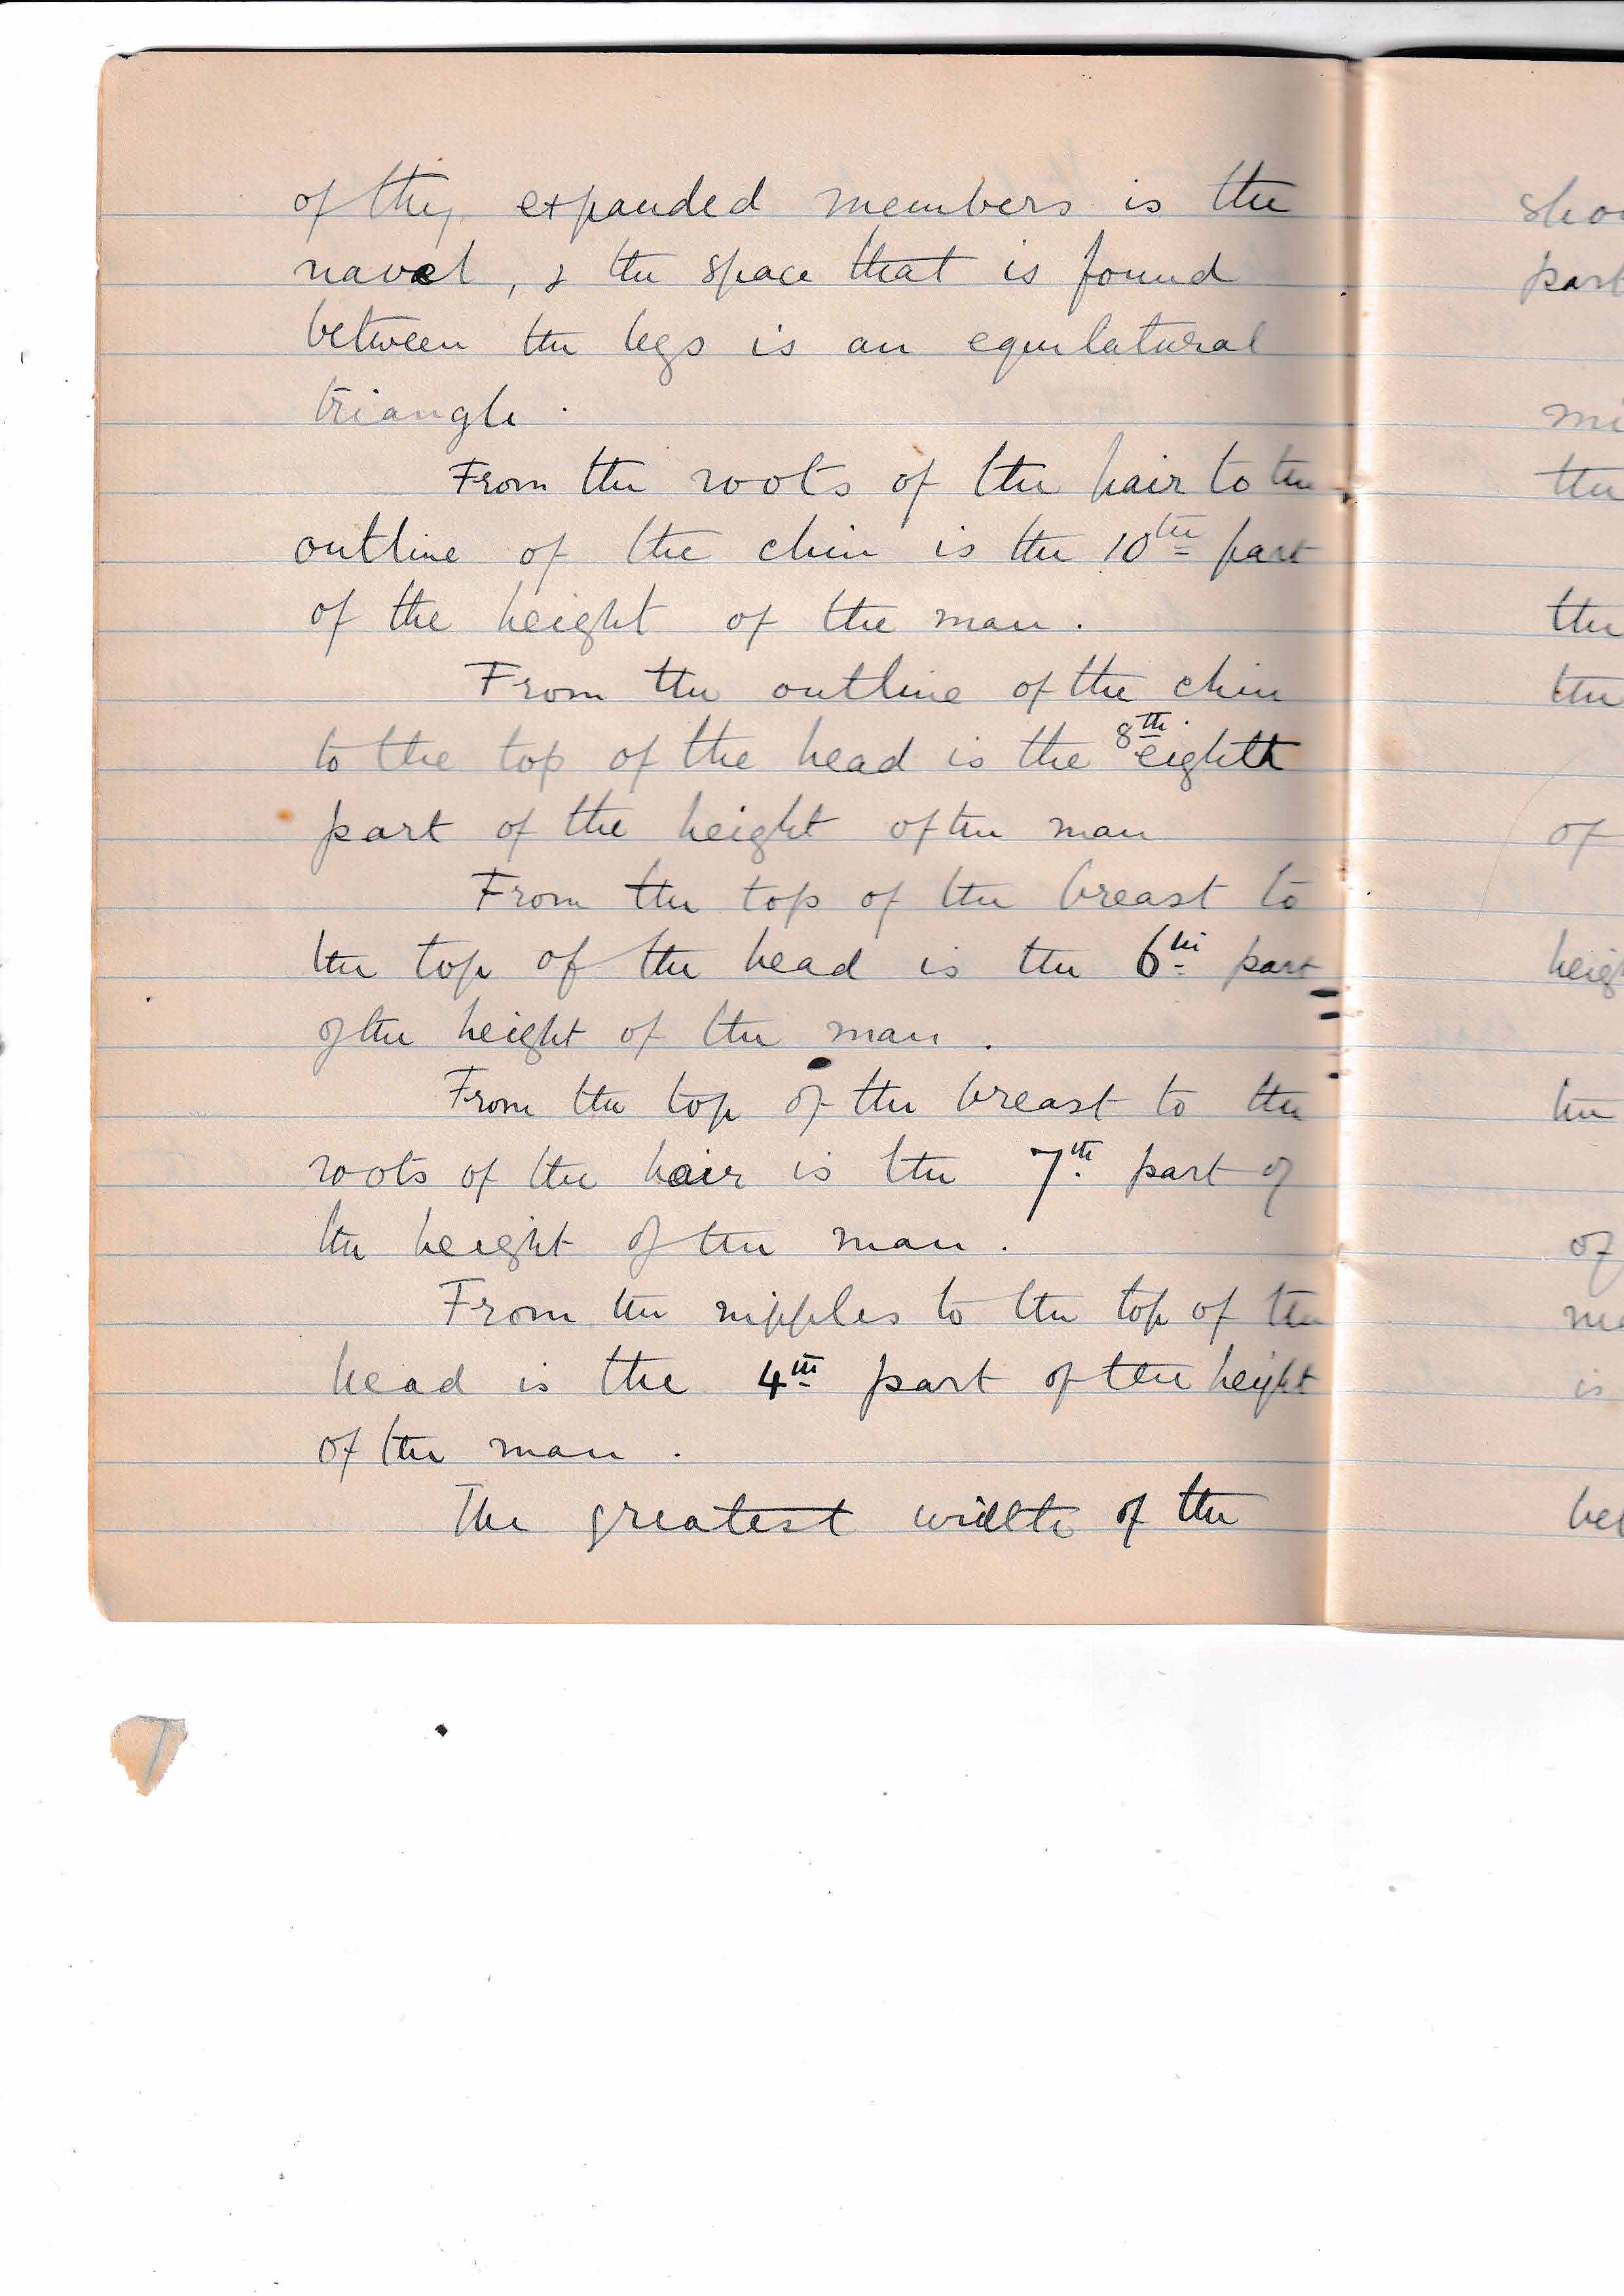 of thy expanded members is the
navel, & the space that is found
between the legs is an equilatural
triangle.
From the roots of the hair to the
outline of the chin is the 10th part
of the height of the man.
From the outline of the chin
to the top of the head is the 8th eighth
part of the height of the man
From the top of the breast to
the top of the head is the 6th part
of the height of the man.
From the top of the breast to the
roots of the hair is the 7th part of
the height of the man.
From the nipples to the top of the
head is the 4th part of the height
of the man.
The greatest width of the
sho
part
mi
the
the
the
of
heig
the
of
is